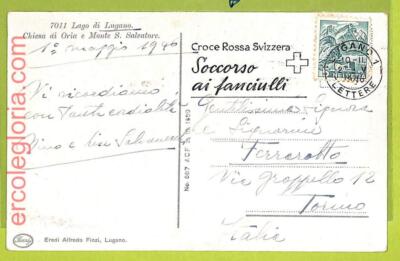 7011 Lago di Lugano.
Chiesa di Oria e Monte S. Salvatore.
1º maggio 1940
Vi ricordiamo
con tanta cordialità
Nino e Lisi
Croce Rossa Svizzera
Soccorso
ai fanciulli
LUGANO 1
LETTERE
Gentilissime Signora
e Signorine
Ferrarotto
Via Grappello 12
Torino
Italia
No. 667 ACF
Eredi Alfredo Finzi, Lugano.
ercolegloria.com